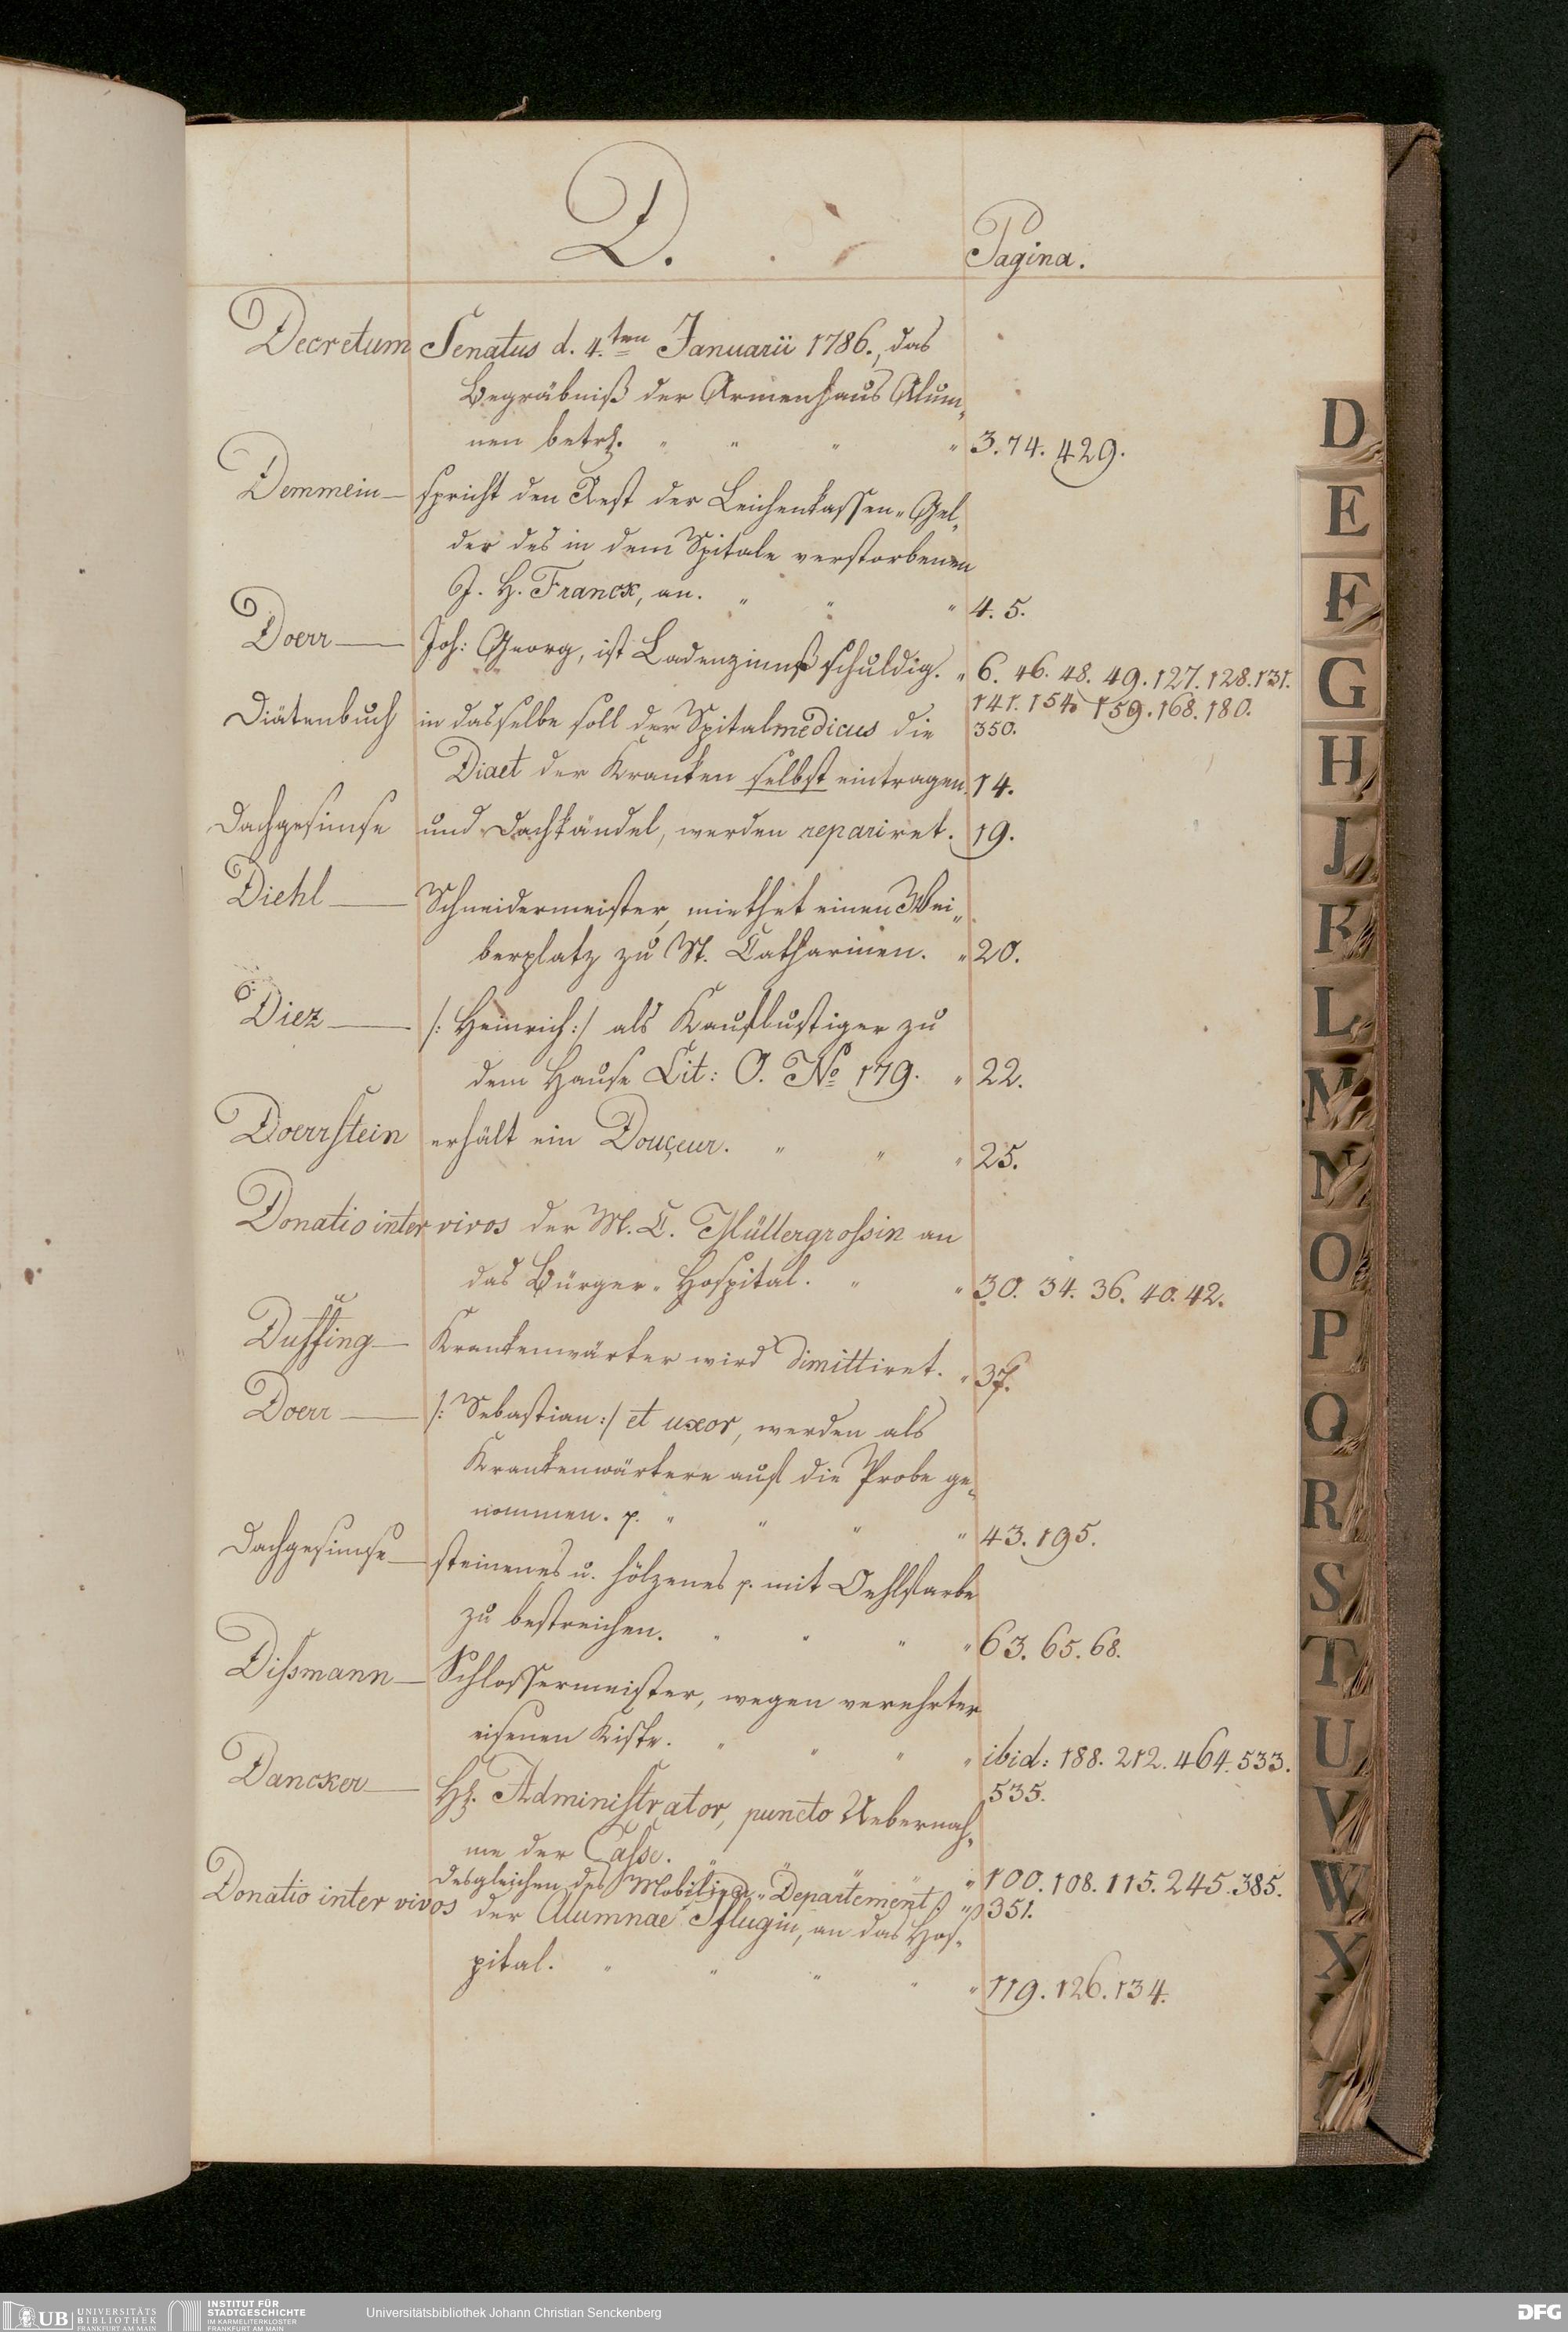 D.
Pagina.
Decretum Senatus d. 4.ten Januarii 1786., das
Begräbniß der Armenhaus Alum„
nen betrf. " " " " 3. 74. 429.
Demmein — spricht den Rest der Leichenkassen„Gel„
der des in dem Spitale verstorbenen
J. H. Franck, an. " " " 4. 5.
Doerr — Joh: Georg, ist Ladenzinnß schuldig. " 6. 46. 48. 49. 127. 128. 131.
141. 154. 159. 168. 180.
Diätenbuch in dasselbe soll der Spitalmedicus die 350.
Diaet der Kranken selbst eintragen. 14.
Dachgesimse und Dachkändel, werden repariret. 19.
Diehl — Schneidermeister, miethet einen Wei„
berplatz zu St. Catharinen. " 20.
Diez — /: Heinrich :/ als Kauflustiger zu
dem Hause Lit: O. No 179. " 22.
Doerrstein erhält ein Douçeur. " " " 25.
Donatio inter vivos der M. C. Müllergrossin an
das Bürger„Hospital. " " 30. 34. 36. 40. 42.
Duffing — Krankenwärter wird dimittiret. " 37.
Doerr — /: Sebastian :/ et uxor, werden als
Krankenwärtere auf die Probe ge„
nommen. p. " " " " 43. 195.
Dachgesimse — steinenes u. hölzenes p. mit Oehlfarbe
zu bestreichen. " " " " 63. 65. 68.
Dissmann — Schlossermeister, wegen verehrter
eisenen Kiste. " " " " ibid: 188. 212. 464. 533.
535.
Dancker — H. Administrator, puncto Uebernah„
me der Casse. " " " " 100. 108. 115. 245. 385.
desgleichen des Mobiliar„Departements " 351.
Donatio inter vivos der Alumnae Pflugin, an das Hos„
pital. " " " " " 119. 126. 134.
D
E
F
G
H
J
K
L
M
N
O
P
Q
R
S
T
U
V
W
X
UB UNIVERSITÄTS
BIBLIOTHEK
FRANKFURT AM MAIN
INSTITUT FÜR
STADTGESCHICHTE
IM KARMELITERKLOSTER
FRANKFURT AM MAIN
Universitätsbibliothek Johann Christian Senckenberg
DFG